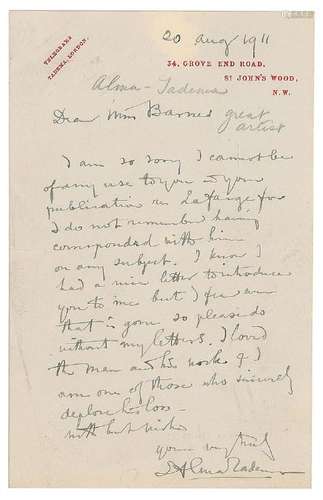 TELEGRAMS
TADEMA, LONDON.
20 aug 1911
34, GROVE END ROAD,
ST JOHN'S WOOD,
N.W.
Alma-Tadema
great
artist
Dear Miss Barnes
I am so sorry I cannot be
of any use to you & your
publication on Lafarge for
I do not remember having
corresponded with him
on any subject. I know I
had a nice letter to introduce
you to me but I
that is gone so please do
without my letters. I loved
the man and his work & I
am one of those who sincerely
deplore his loss -
with best wishes
yours very truly
L Alma Tadema